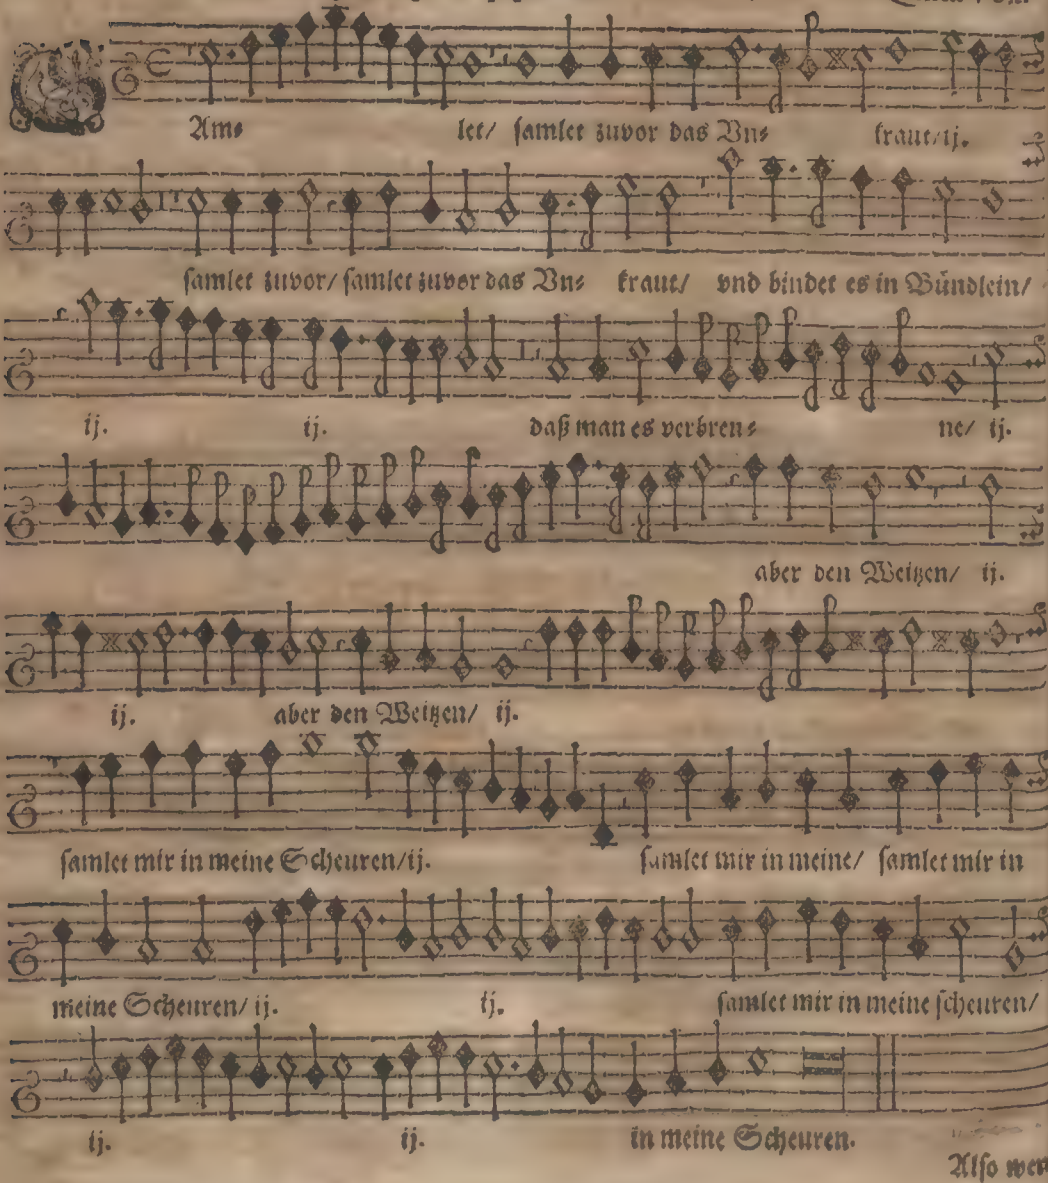 Am⸗ let/ samlet zuvor das Vn⸗ kraut/ij.
samlet zuvor/ samlet zuvor das Vn⸗ kraut/ vnd bindet es in Bündlein/
ij. ij. daß man es verbren⸗ ne/ ij.
aber den Weitzen/ ij.
ij. aber den Weitzen/ ij.
samlet mir in meine Scheuren/ij. samlet mir in meine/ samlet mir in
meine Scheuren/ ij. ij. samlet mir in meine scheuren/
ij. ij. in meine Scheuren.
Also wer